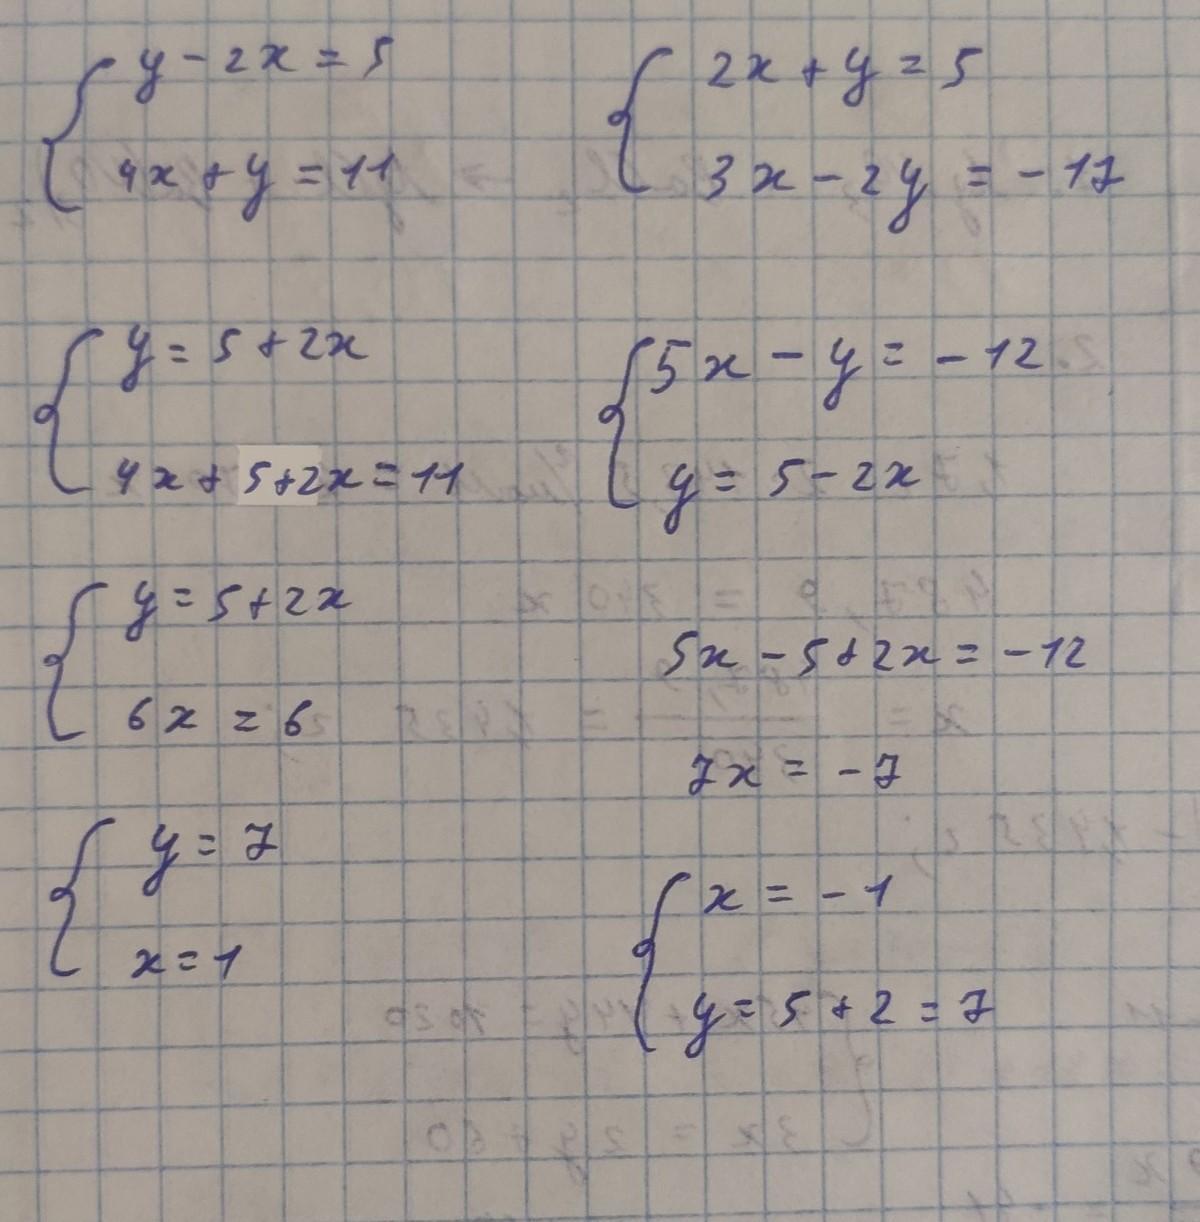 y - 2x = 5
4x + y = 11
y = 5 + 2x
4x + 5 + 2x = 11
y = 5 + 2x
6x = 6
y = 7
x = 1
2x + y = 5
3x - 2y = -17
5x - y = -12
y = 5 - 2x
5x - 5 + 2x = -12
7x = -7
x = -1
y = 5 + 2 = 7